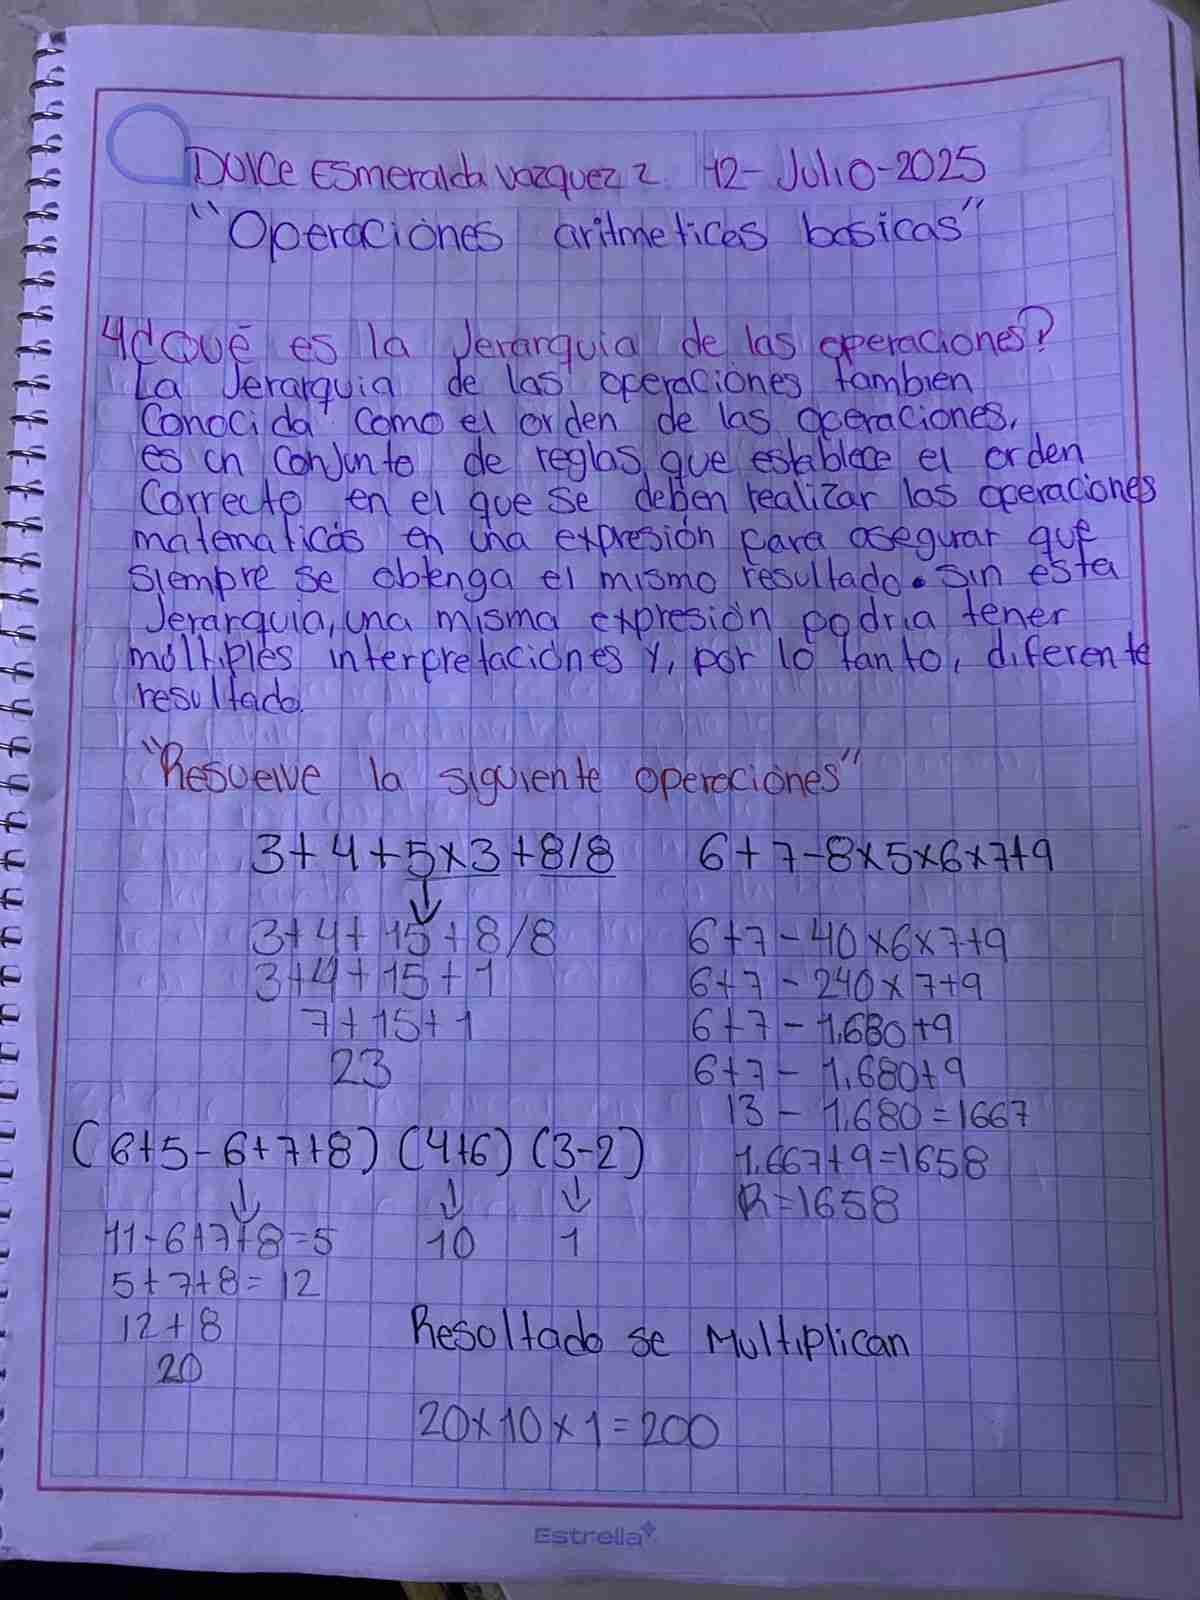 Dulce Esmeralda Vazquez Z 12-Julio-2025
"Operaciones aritmeticas basicas"
4¿Qué es la Jerarquia de las operaciones?
La Jerarquia de las operaciones tambien
Conocida como el orden de las operaciones,
es un conjunto de reglas que establece el orden
Correcto en el que se deben realizar las operaciones
matematicas en una expresión para asegurar que
siempre se obtenga el mismo resultado. Sin esta
Jerarquia, una misma expresión podria tener
múltiples interpretaciones y, por lo tanto, diferente
resultado.
"Resuelve la siguiente operaciones"
3+4+5x3+8/8
3+4+15+8/8
3+4+15+1
7+15+1
23
6+7-8x5x6x7+9
6+7-40x6x7+9
6+7-240x7+9
6+7-1,680+9
6+7-1,680+9
13-1,680=1667
1,667+9=1658
R=1658
(6+5-6+7+8) (4+6) (3-2)
11-6+7+8=5 10 1
5+7+8=12
12+8
20
Resoltado se Multiplican
20x10x1=200
Estrella